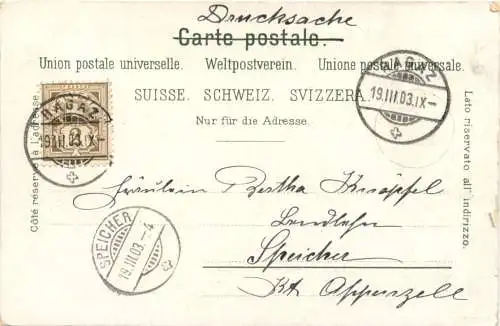 Drucksache
Carte postale.
Union postale universelle. Weltpostverein. Unione postale universale.
SUISSE. SCHWEIZ. SVIZZERA.
Nur für die Adresse.
Côté réservé à l'adresse.
Lato riservato all' indirizzo.
RAGAZ
19.III.03.IX-
2
RAGAZ
19.III.03.IX-
SPEICHER
19.III.03.-4
Fräulein Bertha Knöpfel
Speicher
Kt. Appenzell